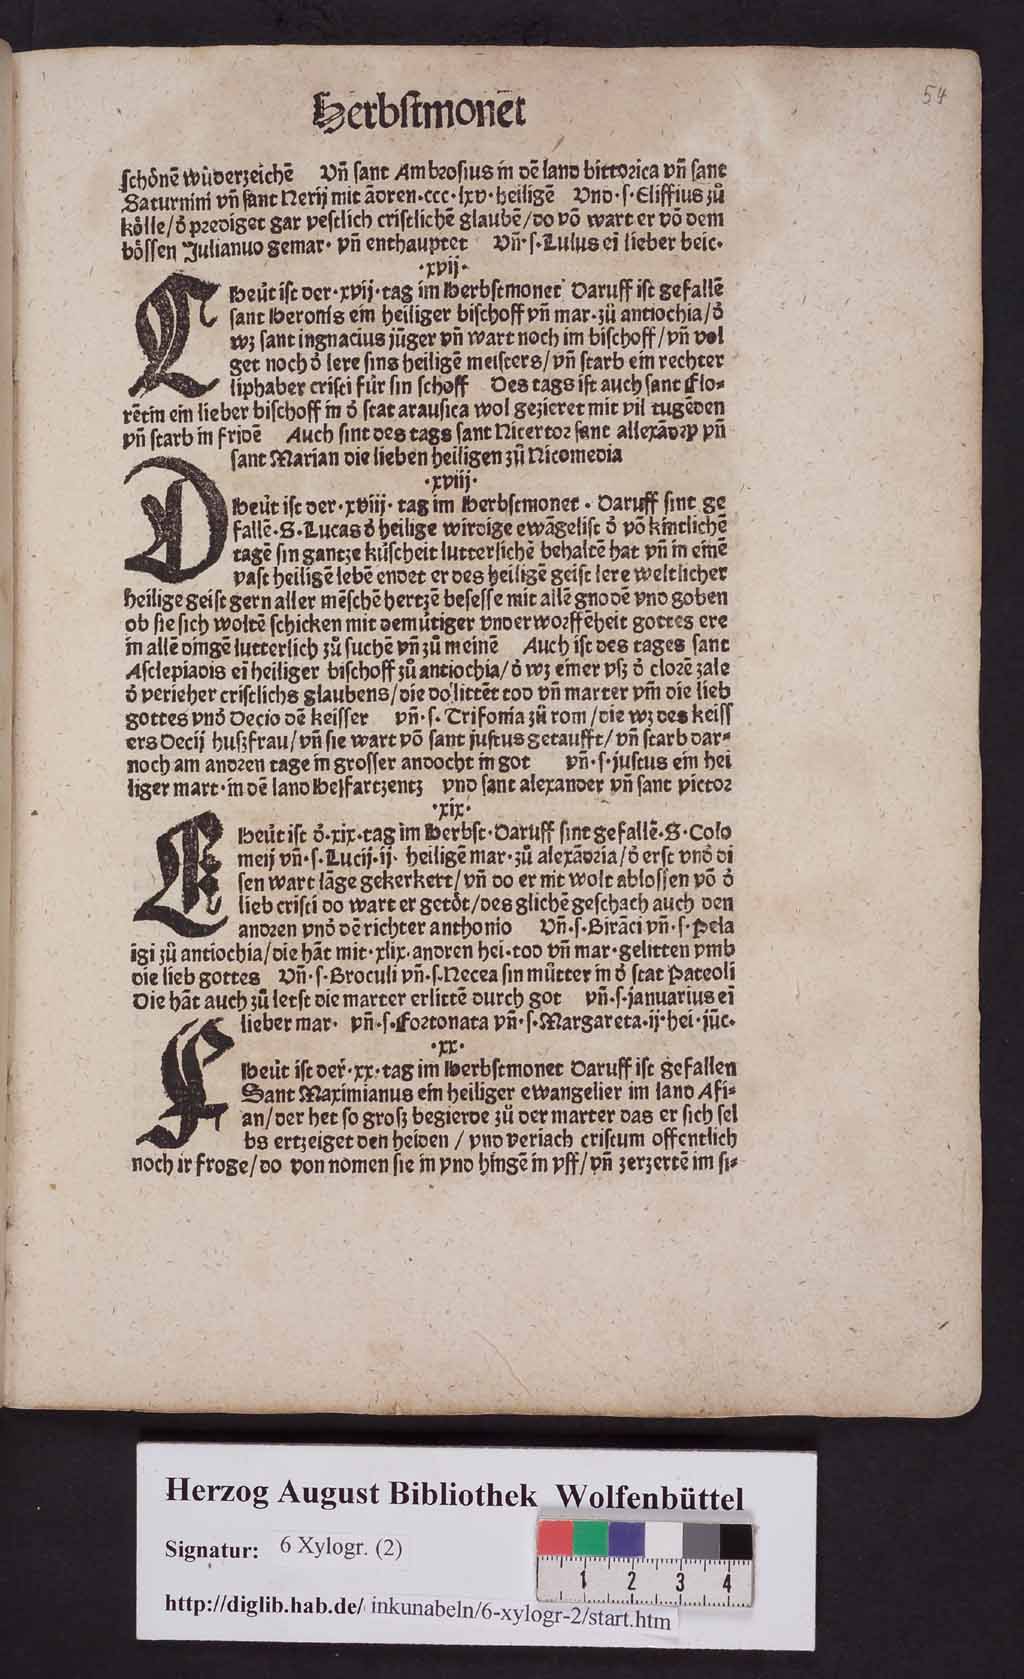 54
Herbstmonet
schónē wūderzeichē Vñ sant Ambrosius in dē land bittorica vñ sant
Saturnini vñ sant Nerij mit ādren·ccc·lxv·heiligē Vnd·s·Eliffius zů
kólle/ð prediget gar vestlich cristlichē glaubē/do vō wart er vō dem
bóssen Julianuo gemar· vñ enthauptet Vñ·s·Lulus ei lieber beic·
·xvij·
C Heút ist der·xvij·tag im Herbstmonet Daruff ist gefallē
sant Heronis ein heiliger bischoff vñ mar·zů antiochia/ð
wz sant ingnacius júger vñ wart noch im bischoff/vñ vol
get noch ð lere sins heiligē meisters/vñ starb ein rechter
liphaber cristi fúr sin schoff Des tags ist auch sant Flo-
rētin ein lieber bischoff in ð stat arausica wol gezieret mit vil tugēden
vñ starb in fridē Auch sint des tags sant Nicertor sant allexādrp vñ
sant Marian die lieben heiligen zů Nicomedia
·xviij·
D Heút ist der·xviij·tag im Herbstmonet·Daruff sint ge
fallē·S·Lucas ð heilige wirdige ewāgelist ð vō kintlichē
tagē sin gantze kúscheit lutterlichē behaltē hat vñ in einē
vast heiligē lebē endet er des heiligē geist lere weltlicher
heilige geist gern aller mēschē hertzē besesse mit allē gnodē vnd goben
ob sie sich woltē schicken mit demůtiger vnderworffēheit gottes ere
in allē dingē lutterlich zů suchē vñ zů meinē Auch ist des tages sant
Asclepiadis ei heiliger bischoff zů antiochia/ð wz einer vsz ð clorē zale
ð verieher cristlichs glaubens/die do littēt tod vñ marter vm die lieb
gottes vnð Decio dē keisser vñ·s·Trifonia zů rom/die wz des keiss
ers Decij huszfrau/vñ sie wart vō sant justus getaufft/vñ starb dar-
noch am andren tage in grosser andocht in got vñ·s·justus ein hei
liger mart·in dē land Helfartzentz vnd sant alexander vñ sant victor
·xix·
E Heút ist ð·xix·tag im Herbst·Daruff sint gefallē·S·Colo
meij vñ·s·Lucij·ij·heiligē mar·zů alexādria/ð erst vnð di
sen wart lāge gekerkert/vñ do er nit wolt ablossen vō ð
lieb cristi do wart er getót/des glichē geschach auch den
andren vnð dē richter anthonio Vñ·s·Birāci vñ·s·Pela
igi zů antiochia/die hāt mit·xlix·andren hei·tod vñ mar·gelitten vmb
die lieb gottes Vñ·s·Broculi vñ·s·Necea sin můtter in ð stat Pateoli
Die hāt auch zů letst die marter erlittē durch got vñ·s·januarius ei
lieber mar· vñ·s·Fortonata vñ·s·Margareta·ij·hei·júc·
·xx·
F Heút ist der·xx·tag im Herbstmonet Daruff ist gefallen
Sant Maximianus ein heiliger ewangelier im land Asi-
an/der het so grosz begierde zů der marter das er sich sel
bs ertzeiget den heiden/vnd veriach cristum offentlich
noch ir froge/do von nomen sie in vnd hingē in vff/vñ zerzertē im si-
Herzog August Bibliothek Wolfenbüttel
Signatur: 6 Xylogr. (2)
1 2 3 4
http://diglib.hab.de/ inkunabeln/6-xylogr-2/start.htm